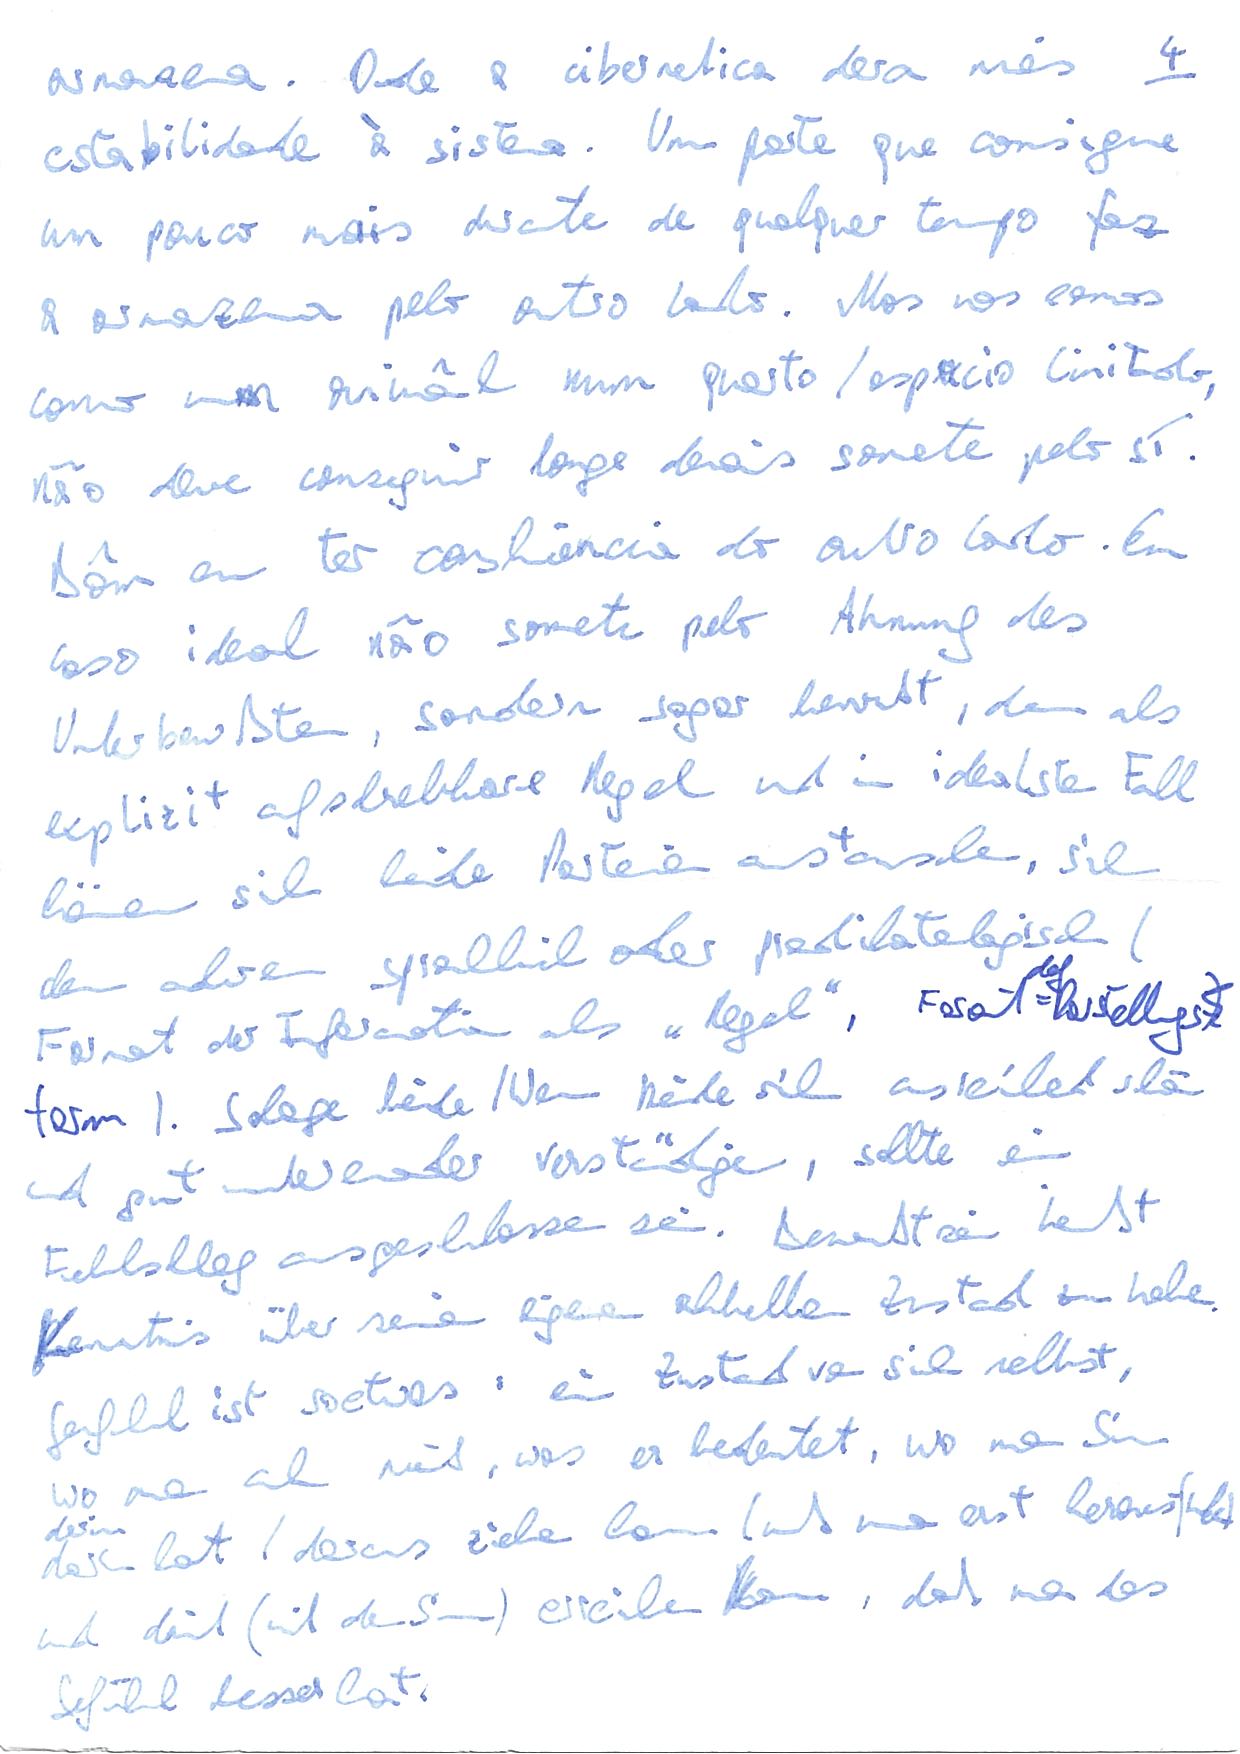 armazena. Onde a cibernetica dera más 4
estabilidade à sistema. Um parte que consigue
um pouco mais durante de qualquer tempo faz
a armazena pelo outro lado. Mas nos somos
como um animâl num quarto / espacio limitado,
não deve conseguir longe demais somete pelo sí.
Bôm en ter conshiência do outro lado. Em
caso ideal não somete pelo Ahnung des
Unterbewußten, sondern sogar bewußt, denn als
explizit aufschreibbare Regel und im idealste Fall
können sich beide Parteien austauschen, sich
dem andren sprachlich oder prädikatelogisch (
Format der Information als „Regel“, Format =def Darstellungs-
form ). Solange beide / Wenn beide sich ausreichend schön
und gut untereinander verständigen, sollte ein
Fehlschlag ausgeschlossen sein. Bewußtsein heißt
Kenntnis über seine eigenen aktuellen Zustand zu haben.
Gefühl ist soetwas: ein Zustand von sich selbst,
wo man ahnt, was er bedeutet, wo man Sinn
darin
hat / daraus ziehen kann (und man erst
und damit (mit dem Sinn) erreichen kann, daß man das
Gefühl besser hat.